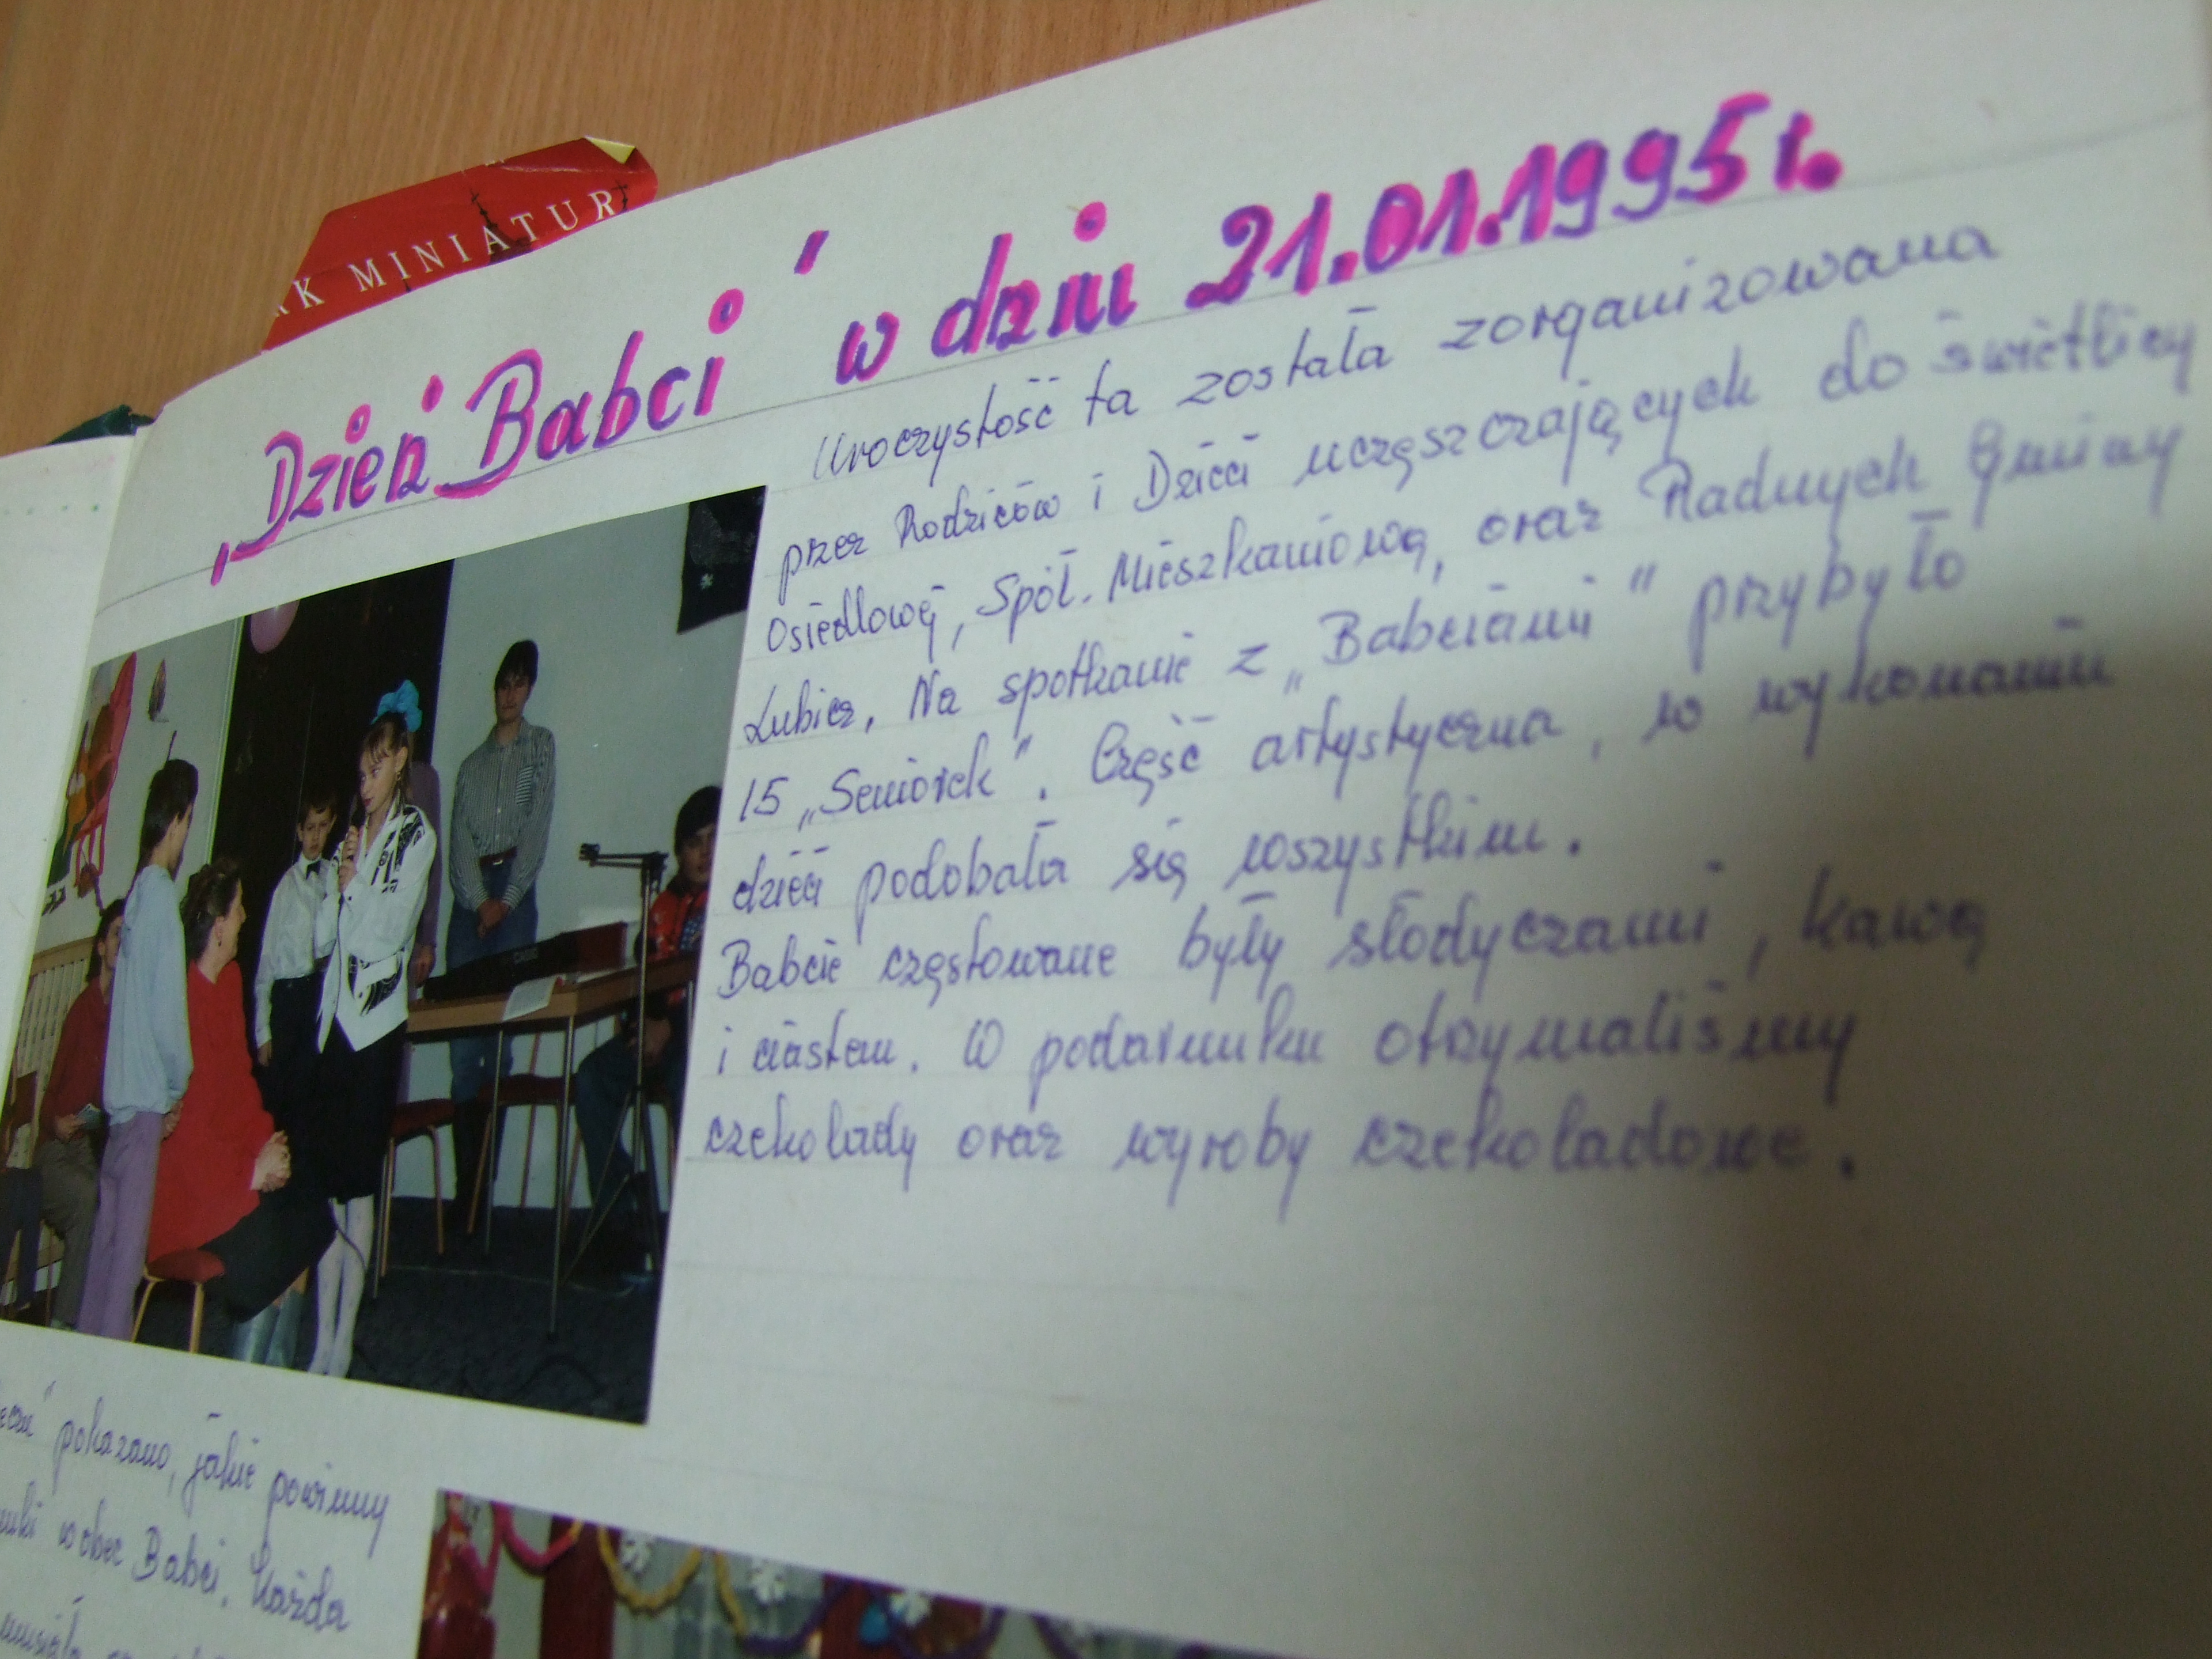 RK MINIATUR
„Dzień Babci" w dniu 21.01.1995 r.
Uroczystość ta została zorganizowana
przez Rodziców i Dzieci uczęszczających do świetlicy
Osiedlowej, Spół. Mieszkaniową, oraz Radnych Gminy
Lubicz. Na spotkanie z „Babciami" przybyło
15 „Seniorek". Część artystyczna, w wykonaniu
dzieci podobała się wszystkim.
Babcie częstowane były słodyczami, kawą
i ciastem. W podarunku otrzymaliśmy
czekolady oraz wyroby czekoladowe.
pokazano, jakie powinny
wobec Babci. Każda
musiała